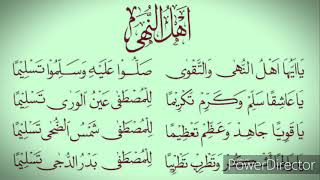 أَهْلُ النُّهَى
يَا أَيُّهَا أَهْلُ النُّهَى وَالتَّقْوَى صَلُّوا عَلَيْهِ وَسَلِّمُوا تَسْلِيمًا
يَا عَاشِقًا سَلِّمْ وَكَرِّمْ تَكْرِيمًا لِلْمُصْطَفَى عَيْنِ الْوَرَى تَسْلِيمًا
يَا قَوِيًّا جَاهِدْ وَعَظِّمْ تَعْظِيمًا لِلْمُصْطَفَى شَمْسِ الضُّحَى تَسْلِيمًا
وَتَطْرِبْ تَطْرِيبًا لِلْمُصْطَفَى بَدْرِ الدُّجَى تَسْلِيمًا
PowerDirector